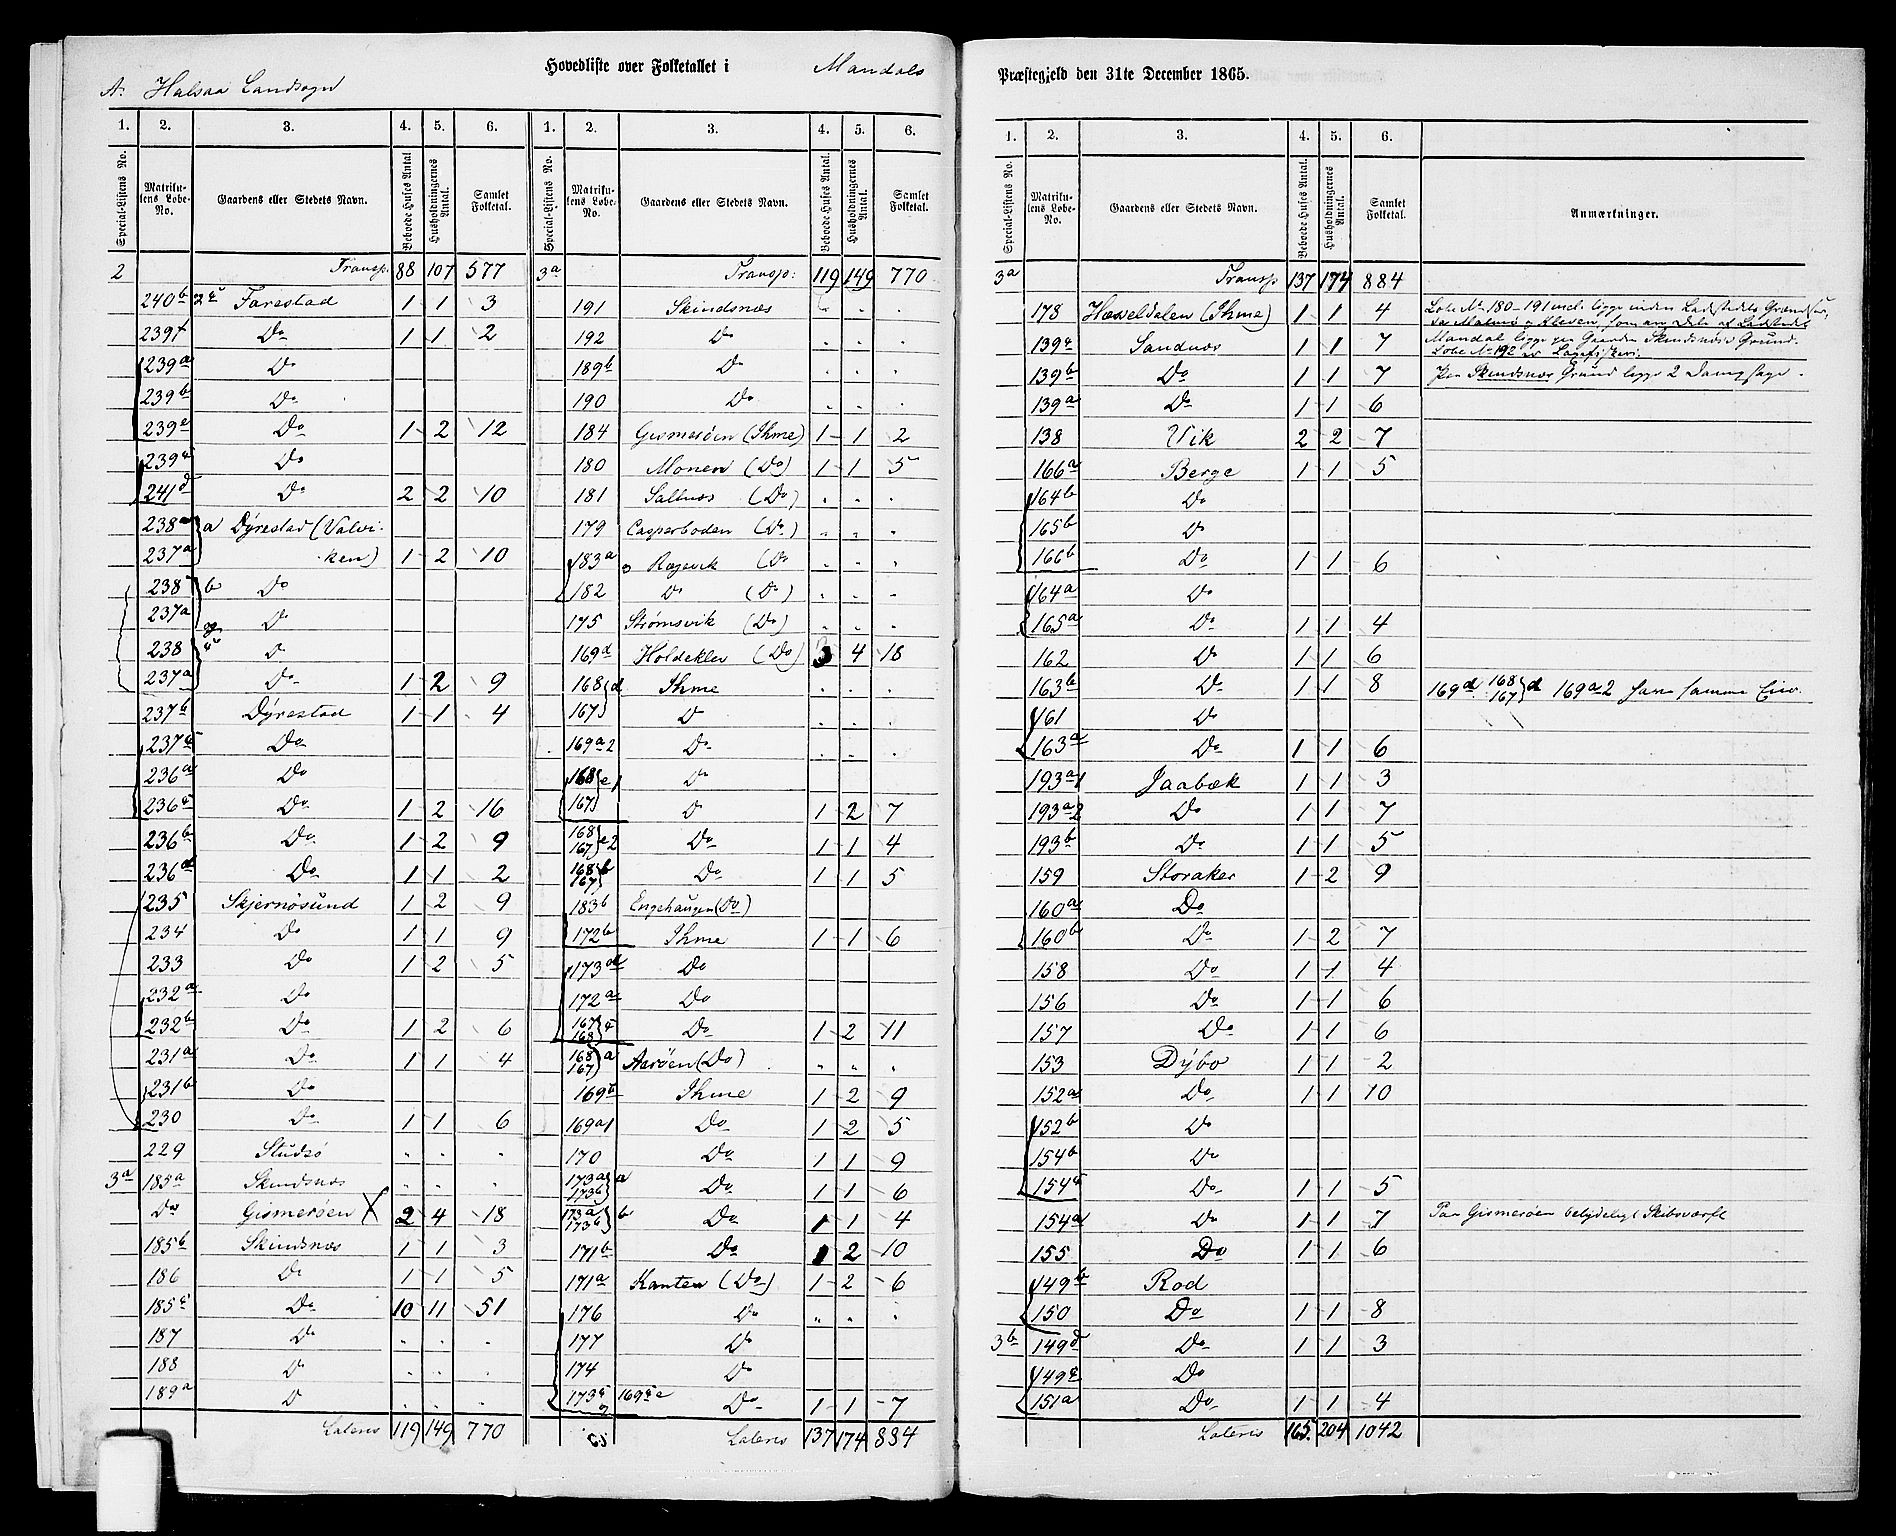 Hovedliste over Folketallet i Mandals
A. Halsaa Landsogn
1. 2. 3. 4. 5. 6. 1. 2. 3. 4. 5. 6.
Special-Listens No. Matrikulens Løbe-No. Gaardens eller Stedets Navn. Beboede Huses Antal Husholdningernes Antal. Samlet Folketal. Special-Listens No. Matrikulens Løbe-No. Gaardens eller Stedets Navn. Beboede Huses Antal. Husholdningernes Antal. Samlet Folketal.
2 Transp. 88 107 577
240b Farestad 1 1 3
239f Do 1 1 2
239a Do
239b Do
239e Do 1 2 12
239c Do
241d Do 2 2 10
238a } a Dyrestad (Valvi-
237a ken) 1 2 10
238 } b Do
237a Do
238 } c Do
237a Do 1 2 9
237b Dyrestad 1 1 4
237c Do
236a Do
236c Do 1 2 16
236b Do 1 2 9
236d Do 1 1 2
235 Skjernøsund 1 2 9
234 Do 1 1 9
233 Do 1 2 5
232a Do
232b Do 1 2 6
231a Do 1 1 4
231b Do
230 Do 1 1 6
229 Studsø " " "
3a 185a Skindsnæs " " "
Do Gismerøen X 2 4 18
185b Skindsnæs 1 1 3
186 Do 1 1 5
185c Do 10 11 51
187 Do " " "
188 Do " " "
189a Do " " "
Lateris 119 149 770
3a Transp: 119 149 770
191 Skindsnæs " " "
192 Do " " "
189b Do " " "
190 Do " " "
184 Gismerøen (Ihme) 1 1 2
180 Monen (Do) 1 1 5
181 Saltnæs (Do) " " "
179 Casperboden (Do) " " "
183a Ragevik (Do " " "
182 Do (Do) " " "
175 Strømsvik (Do) " " "
169d Holdeklev (Do) 3 4 18
168 } d Ihme " " "
167 Do " " "
169a2 Do " " "
168 } e1 Do
167 Do 1 2 7
168 167 } e2 Do 1 1 4
168 167 } b Do 1 1 5
183b Engehaugen (Do)
172b Ihme 1 1 6
173d Do
172a Do
167 168 } c Do 1 2 11
168 167 } a Aarøen (Do) " " "
169b Ihme 1 2 9
169a1 Do 1 2 5
170 Do 1 1 9
173a 173b } a Do 1 1 6
173a 173b } b Do 1 1 4
171b Do 1 2 10
171a Kanten (Do) 1 2 6
176 Do " " "
177 Do
174 Do
173c 169c Do 1 1 7
Lateris 137 174 884
Præstegjeld den 31te December 1865.
1. 2. 3. 4. 5. 6.
Special-Listens No. Matrikulens Løbe-No. Gaardens eller Stedets Navn. Beboede Huses Antal Husholdningernes Antal. Samlet Folketal. Anmærkninger.
3a Transp 137 174 884
178 Hæsseldalen (Ihme) 1 1 4 Løbe No 180-191 incl. ligge inden Ladstedets Grændser,
da Malmø og Kleven, som are Dele af Ladstedet
139c Sandnæs 1 1 7 Mandal ligge paa Gaarden Skindsnæs's Grund.
Løbe No 192 er Laxefiskeri.
139b Do 1 1 7 Paa Skindsnæs Grund ligge 2 Dampsage.
139a Do 1 1 6
138 Vik 2 2 7
166a Berge 1 1 5
164b Do
165b Do
166b Do 1 1 6
164a Do
165a Do 1 1 4
162 Do 1 1 6
163b Do 1 1 8 169d 168 167 } d 169a2 have samme Eier.
161 Do
163a Do 1 1 6
193a1 Jaabæk 1 1 3
193a2 Do 1 1 7
193b Do 1 1 5
159 Storaker 1 2 9
160a Do
160b Do 1 2 7
158 Do 1 1 4
156 Do 1 1 6
157 Do 1 1 6
153 Dybo 1 1 2
152a Do 1 1 10
152b Do
154b Do
154c Do 1 1 5
154a Do 1 1 7 Paa Gismerøen betydeligt Skibsværft
155 Do 1 1 6
149b Rod
150 Do 1 1 8
3b 149d Do 1 1 3
149c Do
151a Do 1 1 4
Lateris 165. 204 1042